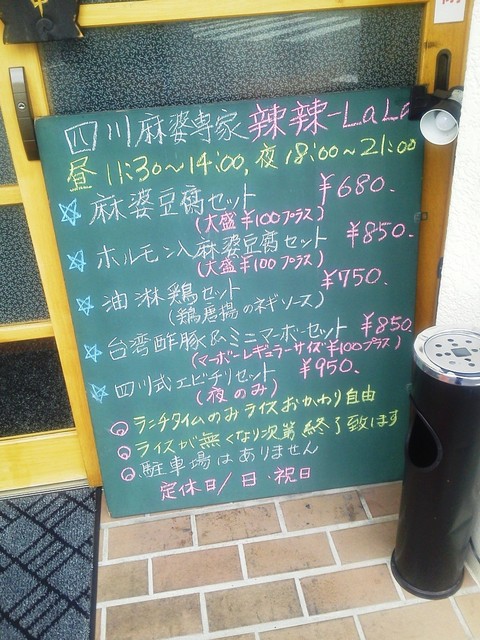 四川麻婆専家 辣辣-LaLa
昼 11:30〜14:00, 夜 18:00〜21:00
☆ 麻婆豆腐セット ¥680.
(大盛¥100プラス)
☆ ホルモン入麻婆豆腐セット ¥850.
(大盛¥100プラス)
☆ 油淋鶏セット ¥750.
(鶏唐揚のネギソース)
☆ 台湾酢豚&ミニマーボーセット ¥850
(マーボーレギュラーサイズ¥100プラス)
☆ 四川式エビチリセット ¥950.
(夜のみ)
◎ ランチタイムのみライスおかわり自由
◎ ライスが無くなり次第終了致ます
◎ 駐車場はありません
定休日/日・祝日